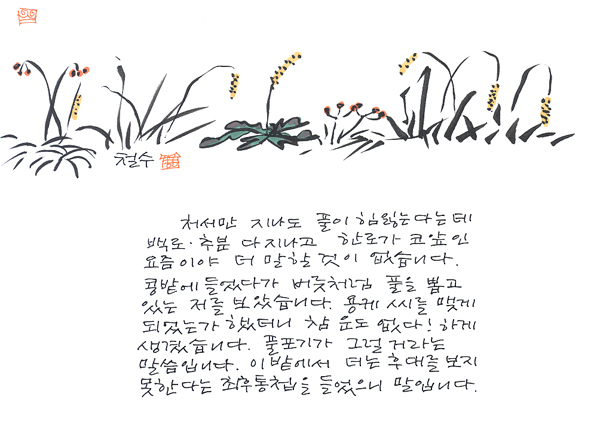 철수
처서만 지나도 풀이 힘 잃는다는데
백로·추분 다 지나고 한로가 코앞인
요즘이야 더 말할 것이 없습니다.
콩밭에 들었다가 버릇처럼 풀을 뽑고
있는 저를 보았습니다. 용케 씨를 맺게
되었는가 했더니 참 운도 없다! 하게
생겼습니다. 풀포기가 그럴 거라는
말씀입니다. 이 밭에서 더는 후대를 보지
못한다는 최후통첩을 들었으니 말입니다.